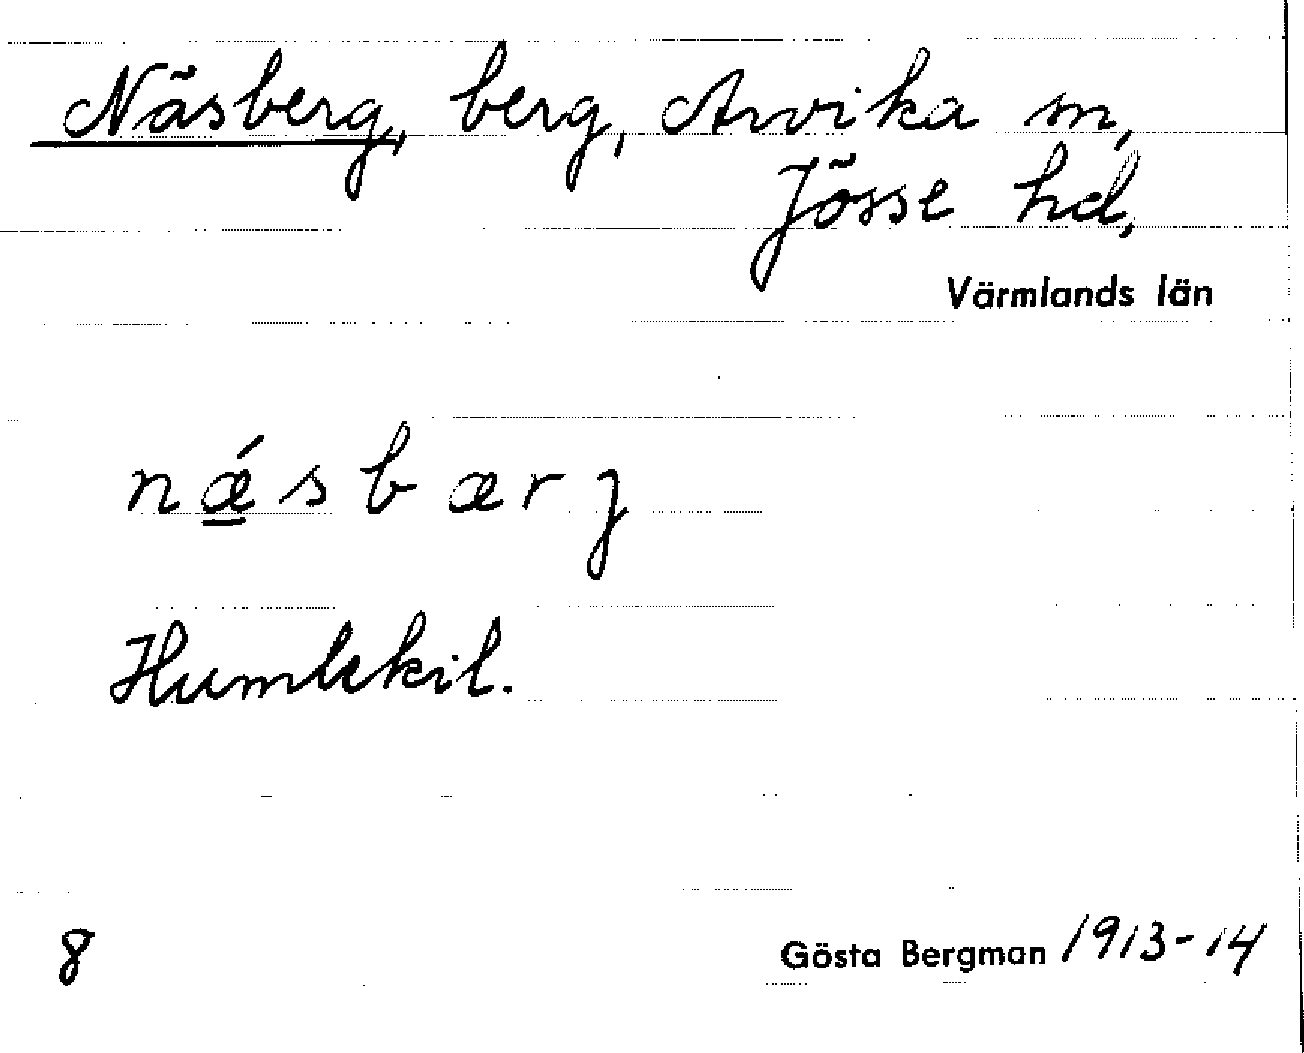 Näsberg, berg, Arvika sn,
Jösse hd,
Värmlands län
nǽ̲sbærj
Humlekil.
8
Gösta Bergman 1913-14